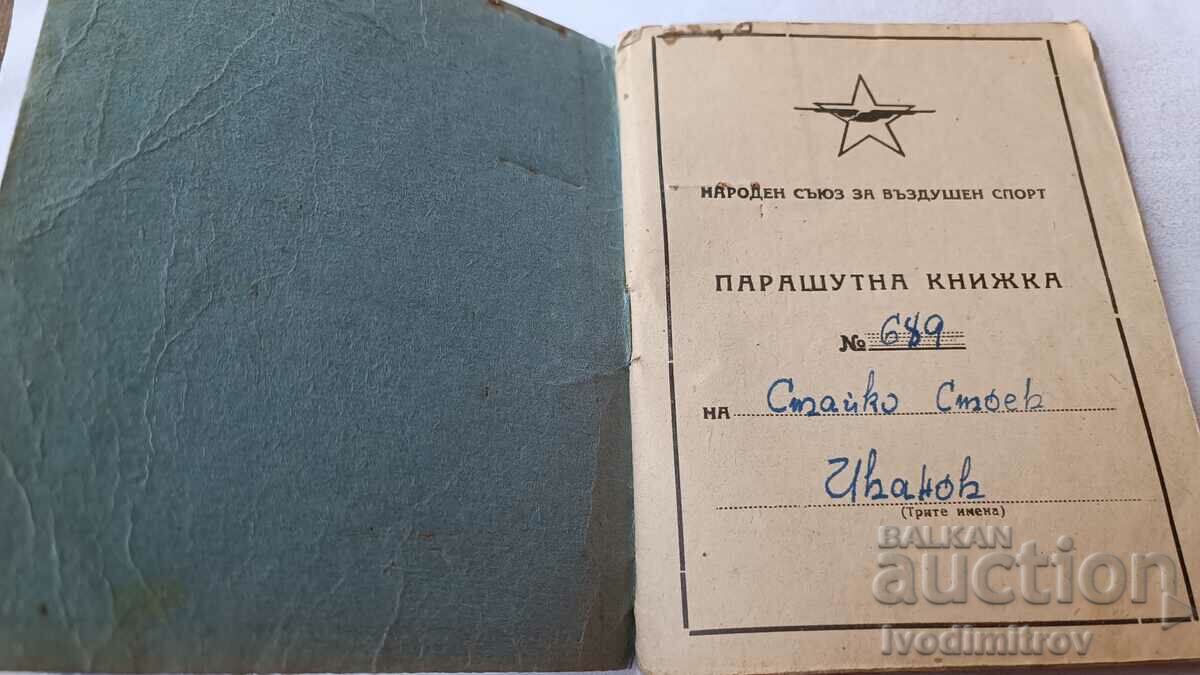 НАРОДЕН СЪЮЗ ЗА ВЪЗДУШЕН СПОРТ
ПАРАШУТНА КНИЖКА
№ 689
НА Стайко Стоев
Иванов
(Трите имена)
BALKAN
auction
Ivodimitrov